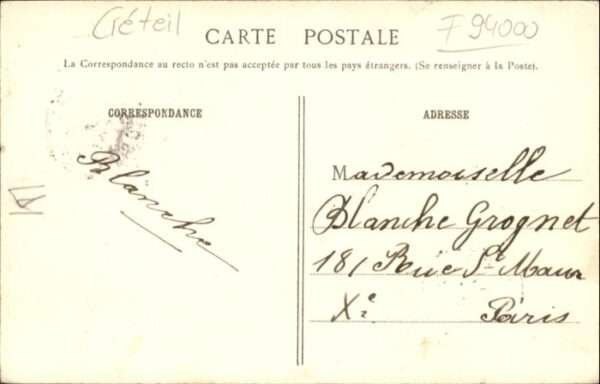 Créteil
F 94000
CARTE POSTALE
La Correspondance au recto n'est pas acceptée par tous les pays étrangers. (Se renseigner à la Poste).
CORRESPONDANCE
Blanche
ADRESSE
Mademoiselle
Blanche Grognet
181 Rue St Maur
Xe Paris